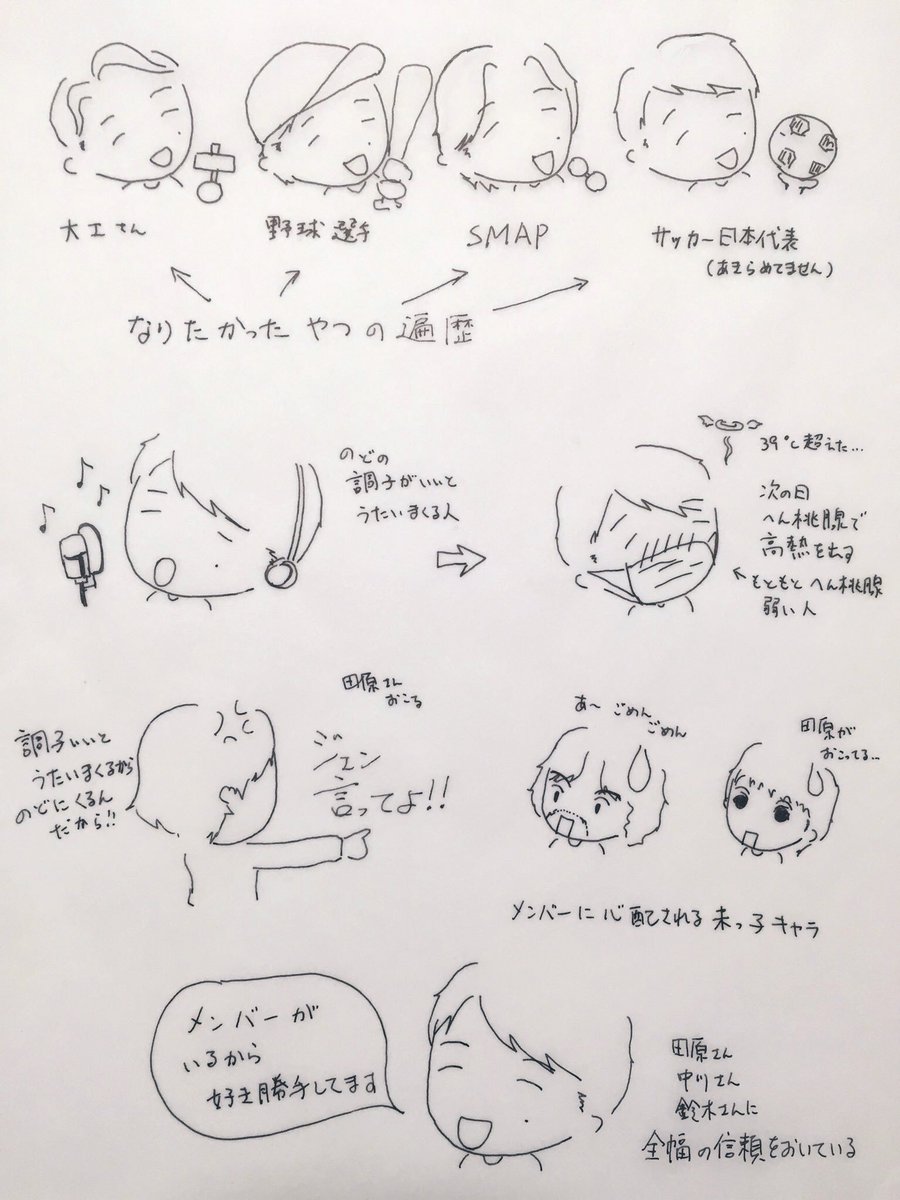 大工さん
野球選手
SMAP
サッカー日本代表
(あきらめてません)
なりたかったやつの遍歴
のどの
調子がいいと
うたいまくる人
39℃超えた…
次の日
へん桃腺で
高熱を出す
もともとへん桃腺
弱い人
田原さん
おこる
調子いいと
うたいまくるから
のどにくるん
だから!!
ジェン
言ってよ!!
あ〜ごめん
ごめん
田原が
おこってる…
メンバーに心配される末っ子キャラ
メンバーが
いるから
好き勝手してます
田原さん
中川さん
鈴木さんに
全幅の信頼をおいている